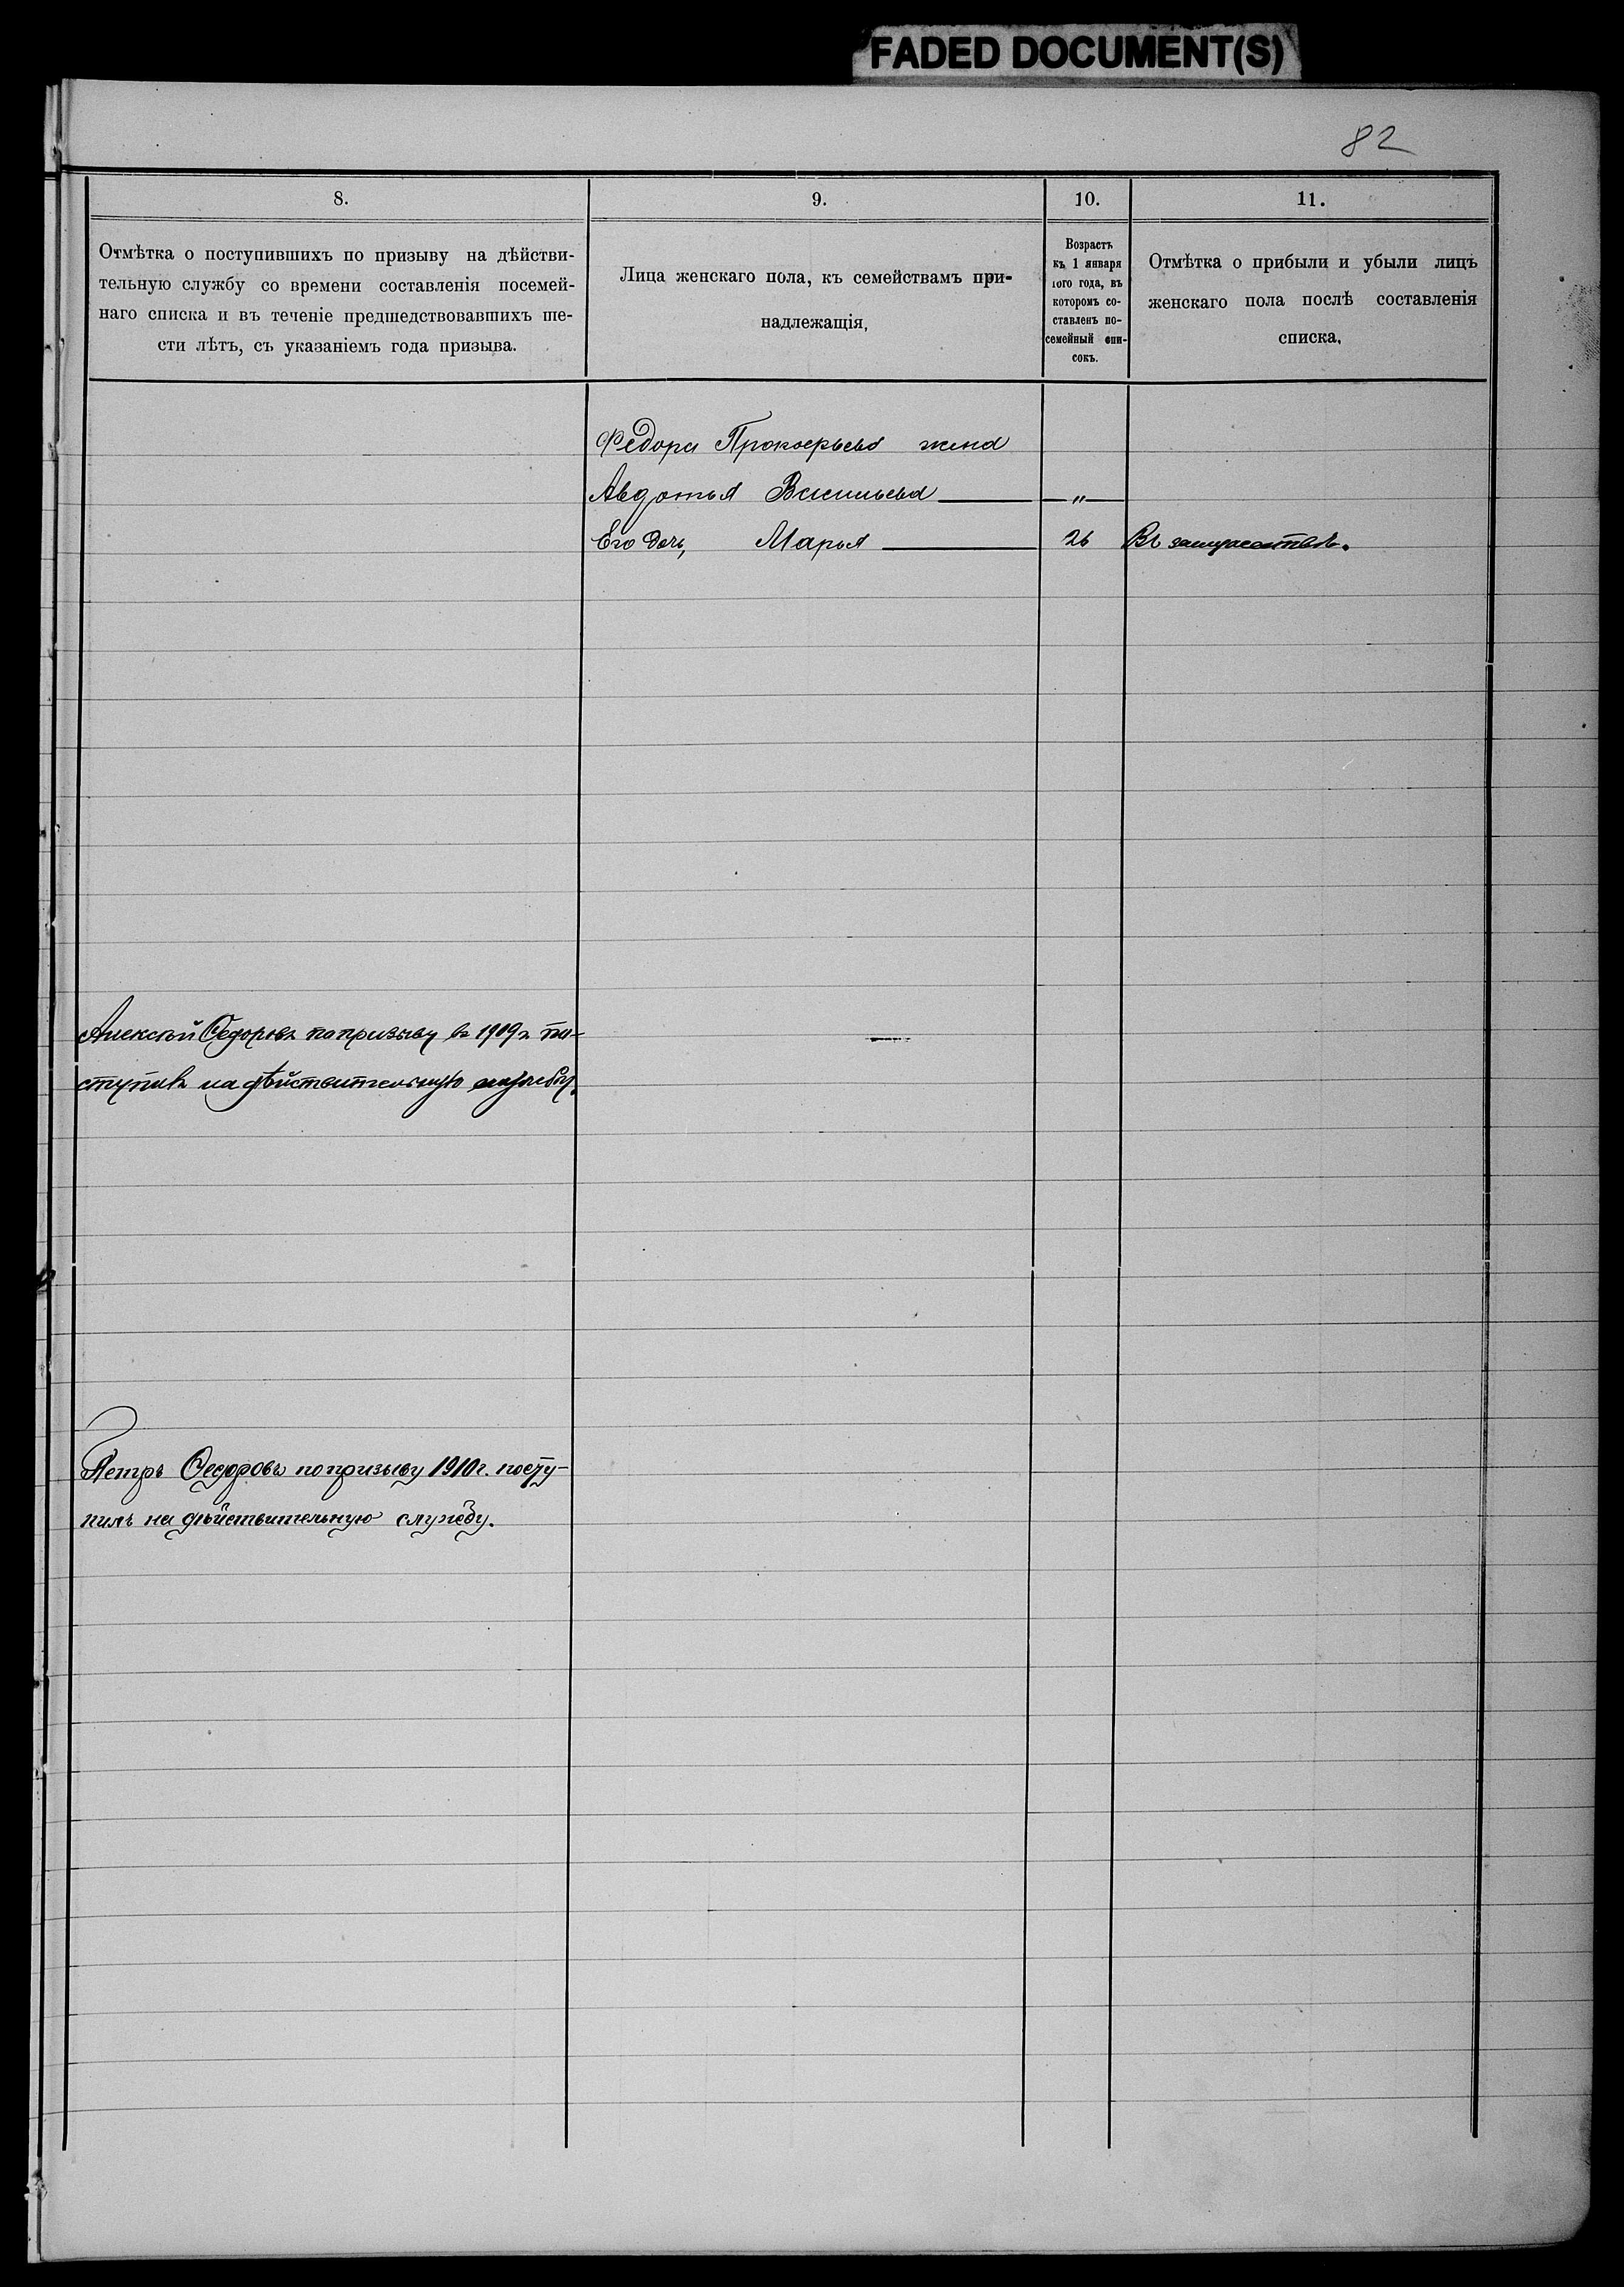 FADED DOCUMENT(S)
82
8.
9.
10.
11.
Отмѣтка о поступившихъ по призыву на дѣйстви-
тельную службу со времени составленія посемей-
наго списка и въ теченіе предшедствовавшихъ ше-
сти лѣтъ, съ указаніемъ года призыва.
Лица женскаго пола, къ семействамъ при-
надлежащія,
Возрастъ
къ 1 января
1ого года, въ
которомъ со-
ставленъ по-
семейный спи-
сокъ.
Отмѣтка о прибыли и убыли лицъ
женскаго пола послѣ составленія
списка.
Федора Прокофьева жена
Авдотья Васильева — „ —
Его дочь, Марья — 26 Въ замужествѣ.
Алексѣй Федоровъ по призыву въ 1909 г. по-
ступилъ на дѣйствительную службу.
Петръ Федоровъ по призыву 1910 г. посту-
пилъ на дѣйствительную службу.